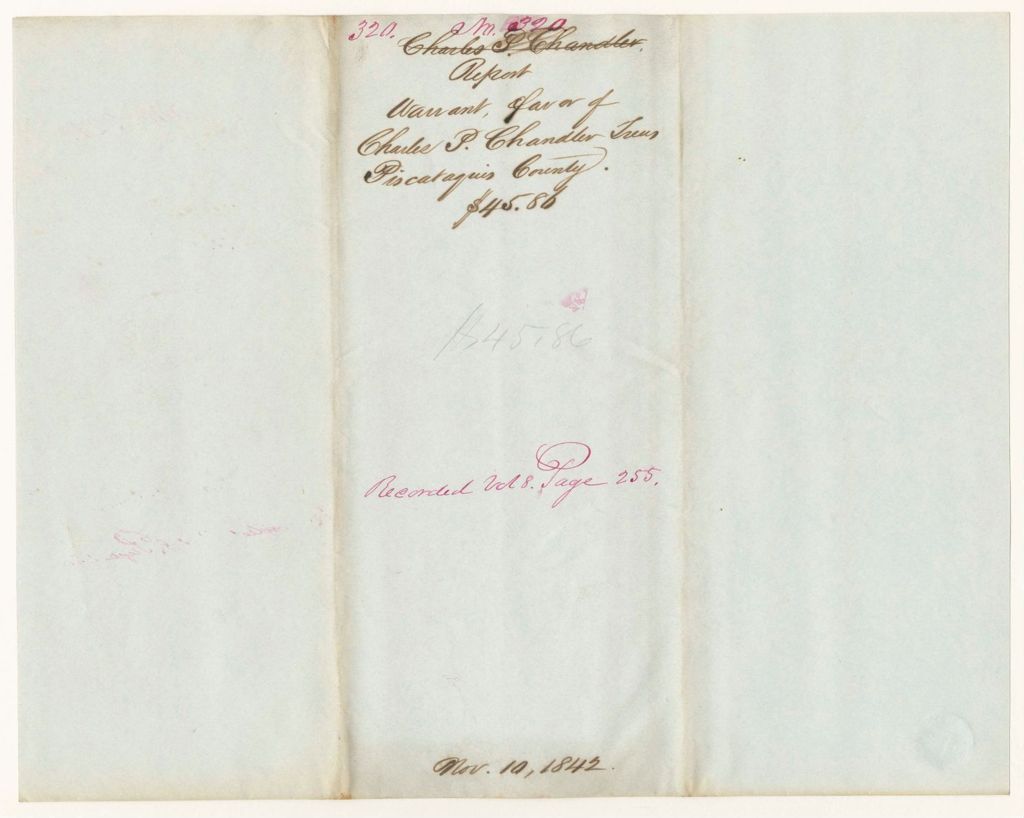 320. 320.
Charles P. Chandler.
Report
Warrant, favor of
Charles P. Chandler Treas
Piscataquis County.
$45.86
$45.86
Recorded Vol 8. Page 255.
Nov. 10, 1842.